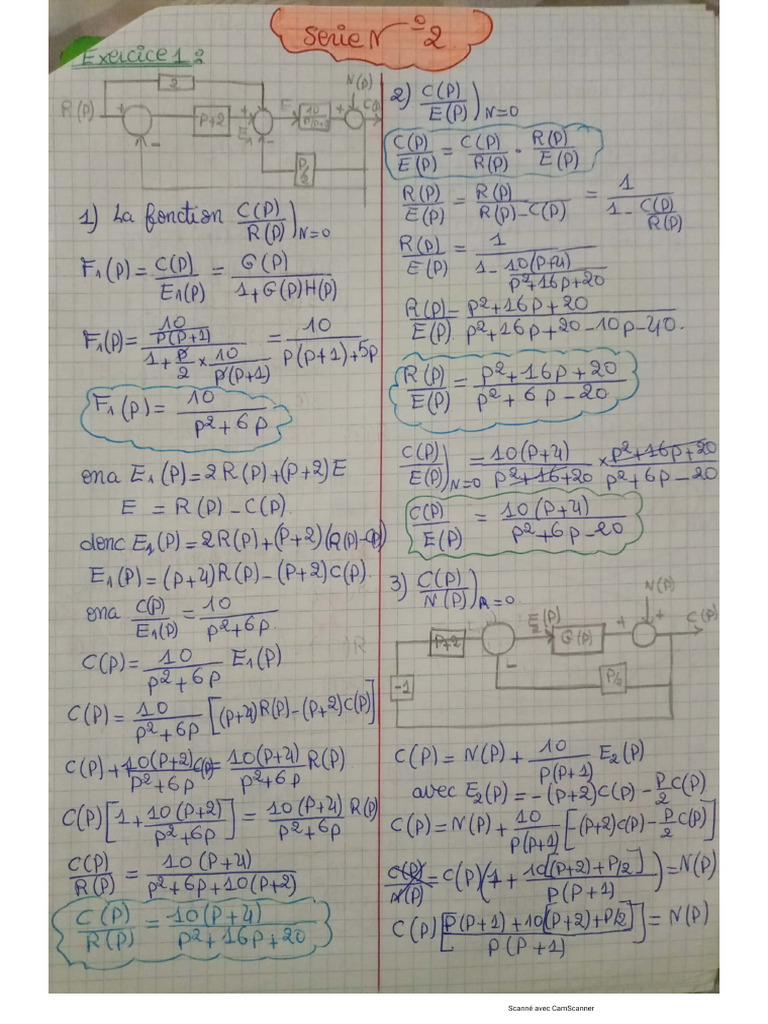 Serie N°2
Exercice 1 :
2
R(P) + P+2 + E₁ E 10/P(P+1) + N(P) C(P)
-
-
P/2
1) La fonction C(P)/R(P))N=0
F₁(P) = C(P)/E₁(P) = G(P)/(1+G(P)H(P))
F₁(P) = (10/P(P+1))/(1+P/2 × 10/P(P+1)) = 10/(P(P+1)+5P)
F₁(P) = 10/(P²+6P)
ona E₁(P)=2R(P)+(P+2)E
E = R(P) - C(P)
donc E₁(P)=2R(P)+(P+2)(R(P)-C(P))
E₁(P)=(P+4)R(P)-(P+2)C(P)
ona C(P)/E₁(P) = 10/(P²+6P)
C(P) = 10/(P²+6P) E₁(P)
C(P) = 10/(P²+6P) [(P+4)R(P)-(P+2)C(P)]
C(P) + 10(P+2)/(P²+6P) C(P) = 10(P+4)/(P²+6P) R(P)
C(P)[1+10(P+2)/(P²+6P)] = 10(P+4)/(P²+6P) R(P)
C(P)/R(P) = 10(P+4)/(P²+6P+10(P+2))
C(P)/R(P) = 10(P+4)/(P²+16P+20)
2) C(P)/E(P))N=0
C(P)/E(P) = C(P)/R(P) · R(P)/E(P)
R(P)/E(P) = R(P)/(R(P)-C(P)) = 1/(1-C(P)/R(P))
R(P)/E(P) = 1/(1-10(P+4)/(P²+16P+20))
R(P)/E(P) = (P²+16P+20)/(P²+16P+20-10P-40.)
R(P)/E(P) = (P²+16P+20)/(P²+6P-20)
C(P)/E(P))N=0 = 10(P+4)/(P²+16+20) × (P²+16P+20)/(P²+6P-20)
C(P)/E(P) = 10(P+4)/(P²+6P-20)
3) C(P)/N(P))R=0
N(P)
P+2 E₂(P) G(P) + + C(P)
-
P/2
-1
C(P) = N(P) + 10/P(P+1) E₂(P)
avec E₂(P) = -(P+2)C(P) - P/2 C(P)
C(P) = N(P) + 10/P(P+1) [-(P+2)C(P) - P/2 C(P)]
C(P)/N(P) = C(P)(1 + 10[(P+2)+P/2]/P(P+1)) = N(P)
C(P)[(P(P+1)+10[(P+2)+P/2])/P(P+1)] = N(P)
Scanné avec CamScanner